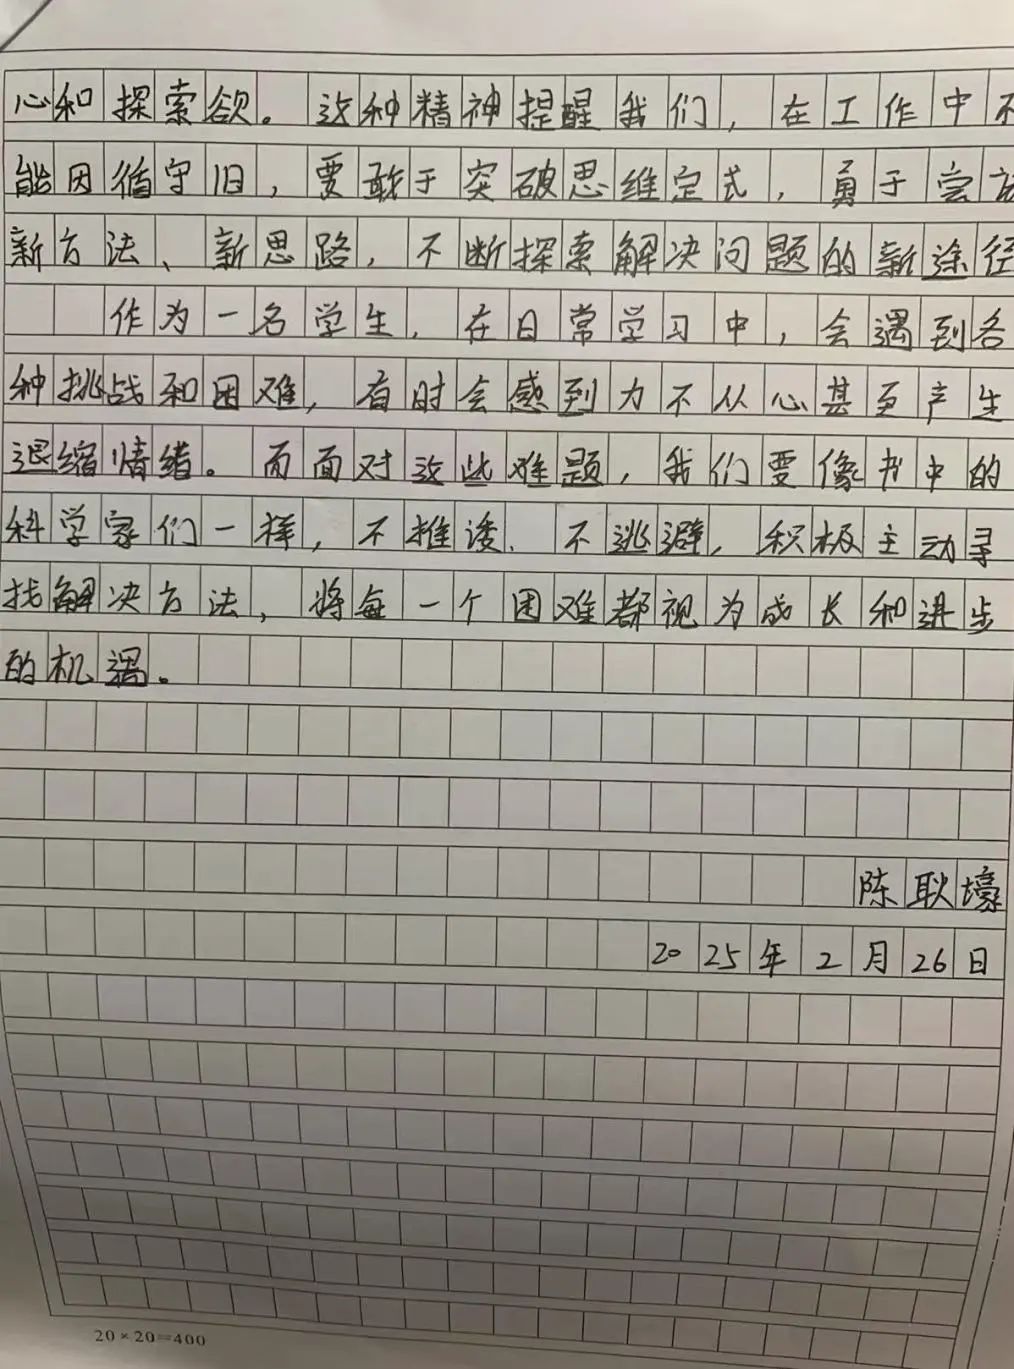 心和探索欲。这种精神提醒我们，在工作中不
能因循守旧，要敢于突破思维定式，勇于尝试
新方法、新思路，不断探索解决问题的新途径
作为一名学生，在日常学习中，会遇到各
种挑战和困难，有时会感到力不从心甚至产生
退缩情绪。而面对这些难题，我们要像书中的
科学家们一样，不推诿、不逃避，积极主动寻
找解决方法，将每一个困难都视为成长和进步
的机遇。
陈耿壕
2025年2月26日
20×20=400